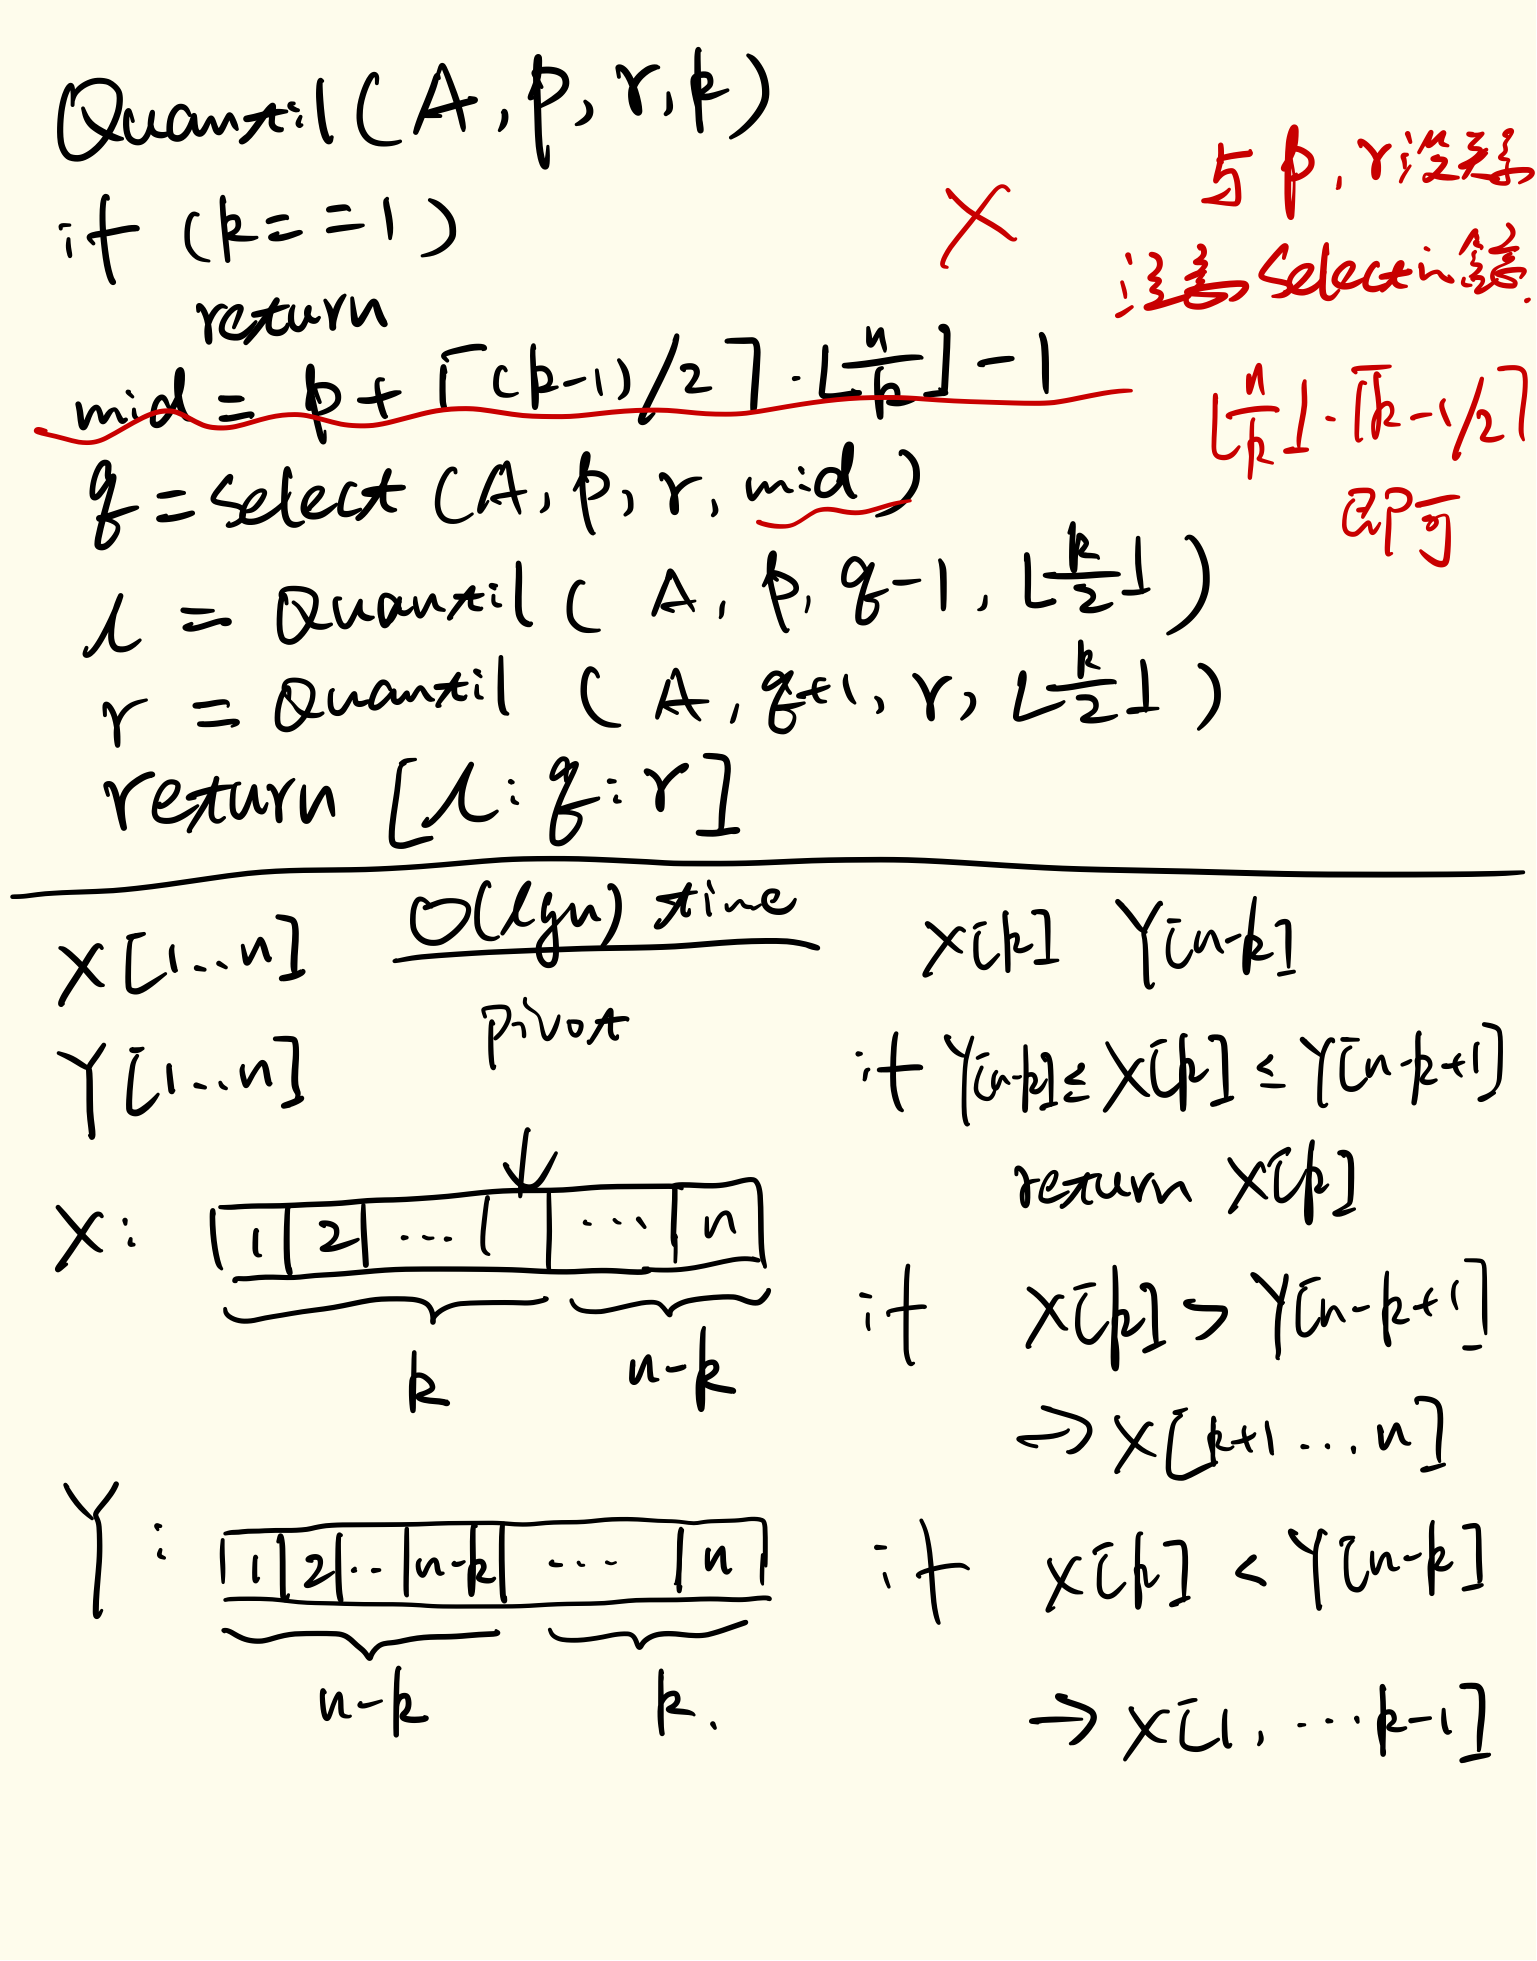 Quantil(A, p, r, k)
if (k==1)
return
mid = p + ⌈(k-1)/2⌉ · ⌊n/k⌋ - 1
q = select (A, p, r, mid)
l = Quantil( A, p, q-1, ⌊k/2⌋ )
r = Quantil ( A, q+1, r, ⌊k/2⌋ )
return [l : q : r]
×
与 p, r 没关系
注意 Select in
⌊n/k⌋ · ⌈k-1/2⌉
即可
O(lgn) time
X[1...n]
Y[1...n]
pivot
X:
1 2 ... ... n
k n-k
Y:
1 2 ... n-k ... n
n-k k.
X[k] Y[n-k]
if Y[n-k] ≤ X[k] ≤ Y[n-k+1]
return X[k]
if X[k] > Y[n-k+1]
→ X[k+1 .... n]
if X[k] < Y[n-k]
→ X[1, ... k-1]